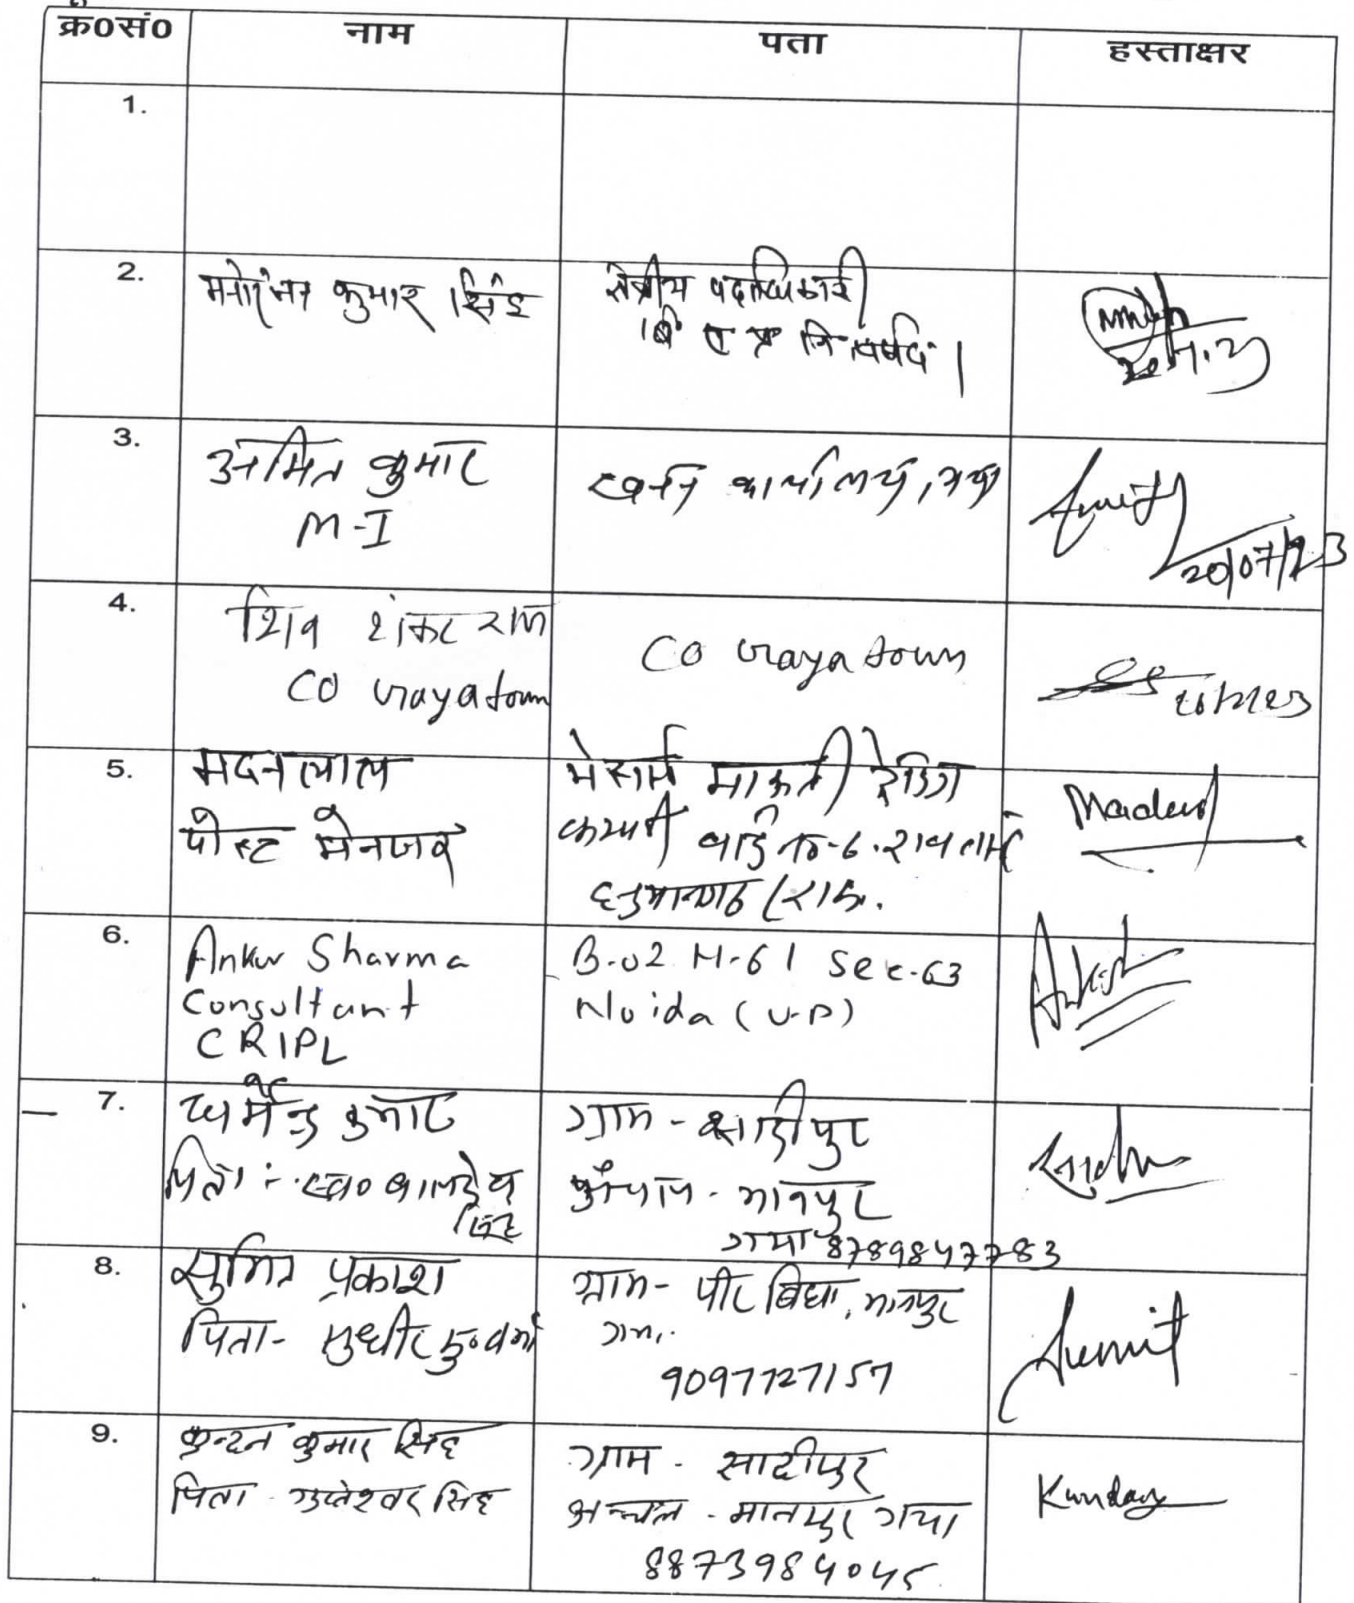 क्र०सं० नाम पता हस्ताक्षर
1.
2. मनोरंजन कुमार सिंह
क्षेत्रीय पदाधिकारी
20.7.23
3. अमित कुमार
M-I
खनन कार्यालय, गया
Amit
20/07/23
4. शिव शंकर राम
CO Gaya town
CO Gaya town
5. मदनलाल
पोस्ट मैनेजर
मेसर्स मारूती
6.
Madan
6. Ankur Sharma
Consultant
CRIPL
B-02 H-61 Sec-63
Noida (U.P)
Ankush
7. धर्मेन्द्र कुमार
पिता :- स्व०
सिंह
ग्राम - शादीपुर
मानपुर
गया
8. सुमित प्रकाश
पिता- सुधीर कु० वर्मा
ग्राम- पीर बिघा, मानपुर
गया
9097727157
Sumit
9. कुन्दन कुमार सिंह
पिता - गुप्तेश्वर सिंह
ग्राम - सादीपुर
अन्चल - मानपुर गया
8873984045
Kundan